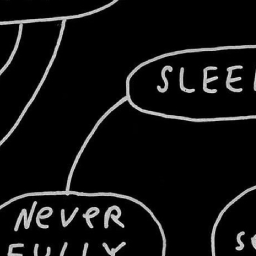 SLEE
NEVER
FULLY